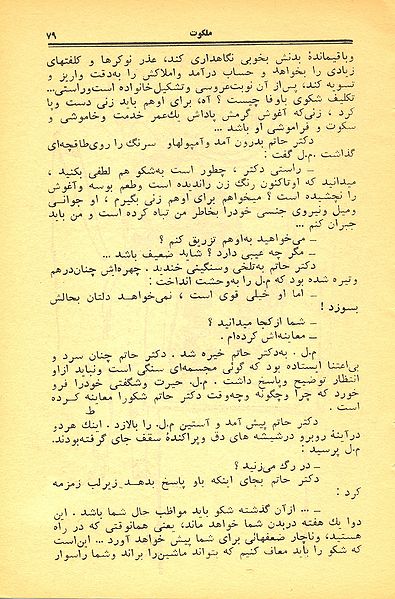 ملکوت ۷۹
وباقیماندهٔ بدنش بخوبی نگاهداری کند، عذر نوکرها و کلفتهای
زیادی را بخواهد و حساب درآمد واملاکش را به‌دقت واریز و
تسویه کند، پس‌از آن نوبت‌عروسی وتشکیل‌خانواده است‌وراستی...
تکلیف شکوی باوفا چیست ؟ آه، برای اوهم باید زنی دست وپا
کرد ، زنی‌که آغوش گرمش پاداش یك‌عمر خدمت وخاموشی و
سکوت و فراموشی او باشد ...
دکتر حاتم بدرون آمد وآمپولهاو سرنگ را روی‌طاقچه‌ای
گذاشت .م.ل گفت :
ــ راستی دکتر ، چطور است به‌شکو هم لطفی بکنید ،
میدانید که اوتاکنون رنگ زن راندیده است وطعم بوسه وآغوش
را نچشیده است ؟ میخواهم برای اوهم زنی بگیرم ، او جوانـی
ومیل ونیروی جنسی خودرا بخاطر من تباه کرده است و من باید
جبران کنم ...
ــ می‌خواهید به‌اوهم تزریق کنم ؟
ــ مگر چه عیبی دارد ؟ شاید ضعیف باشد ...
دکتر حاتم به‌تلخی وسنگینی خندید . چهره‌اش چنان‌درهم
وتیره شده بود که م.ل را به‌وحشت انداخت :
ــ اما او خیلی قوی است ، نمی‌خواهـد دلتان بحالش
بسوزد !
ــ شما ازکجا میدانید ؟
ــ معاینه‌اش کرده‌ام .
م.ل . به‌دکتر حاتم خیره شد . دکتر حاتم چنان سرد و
بی‌اعتنا ایستاده بود که گوئی مجسمه‌ای سنگی است ونباید ازاو
انتظار توضیح وپاسخ داشت . م.ل. حیرت وشگفتی خودرا فرو
خورد که چرا وچگونه وچه‌وقت دکتر حاتم شکورا معاینه کـرده
است . ط
دکتر حاتم پیش آمد و آستین م.ل. را بالازد . اینك هردو
درآینهٔ روبرو درشیشه های دق وپراکندهٔ سقف جای گرفته‌بودند.
م.ل پرسید :
ــ در رگ می‌زنید ؟
دکتر حاتم بجای اینکه باو پاسخ بدهـد زیرلب زمزمه
کرد :
ــ ... ازآن گذشته شکو باید مواظب حال شما باشد . این
دوا یك هفته دربدن شما خواهد ماند، یعنی همانوقتی که در راه
هستید، وناچار ضعفهائی برای شما پیش خواهد آورد ... این‌است
که شکو را باید معاف کنیم که بتواند ماشین‌را براند وشما راسوار